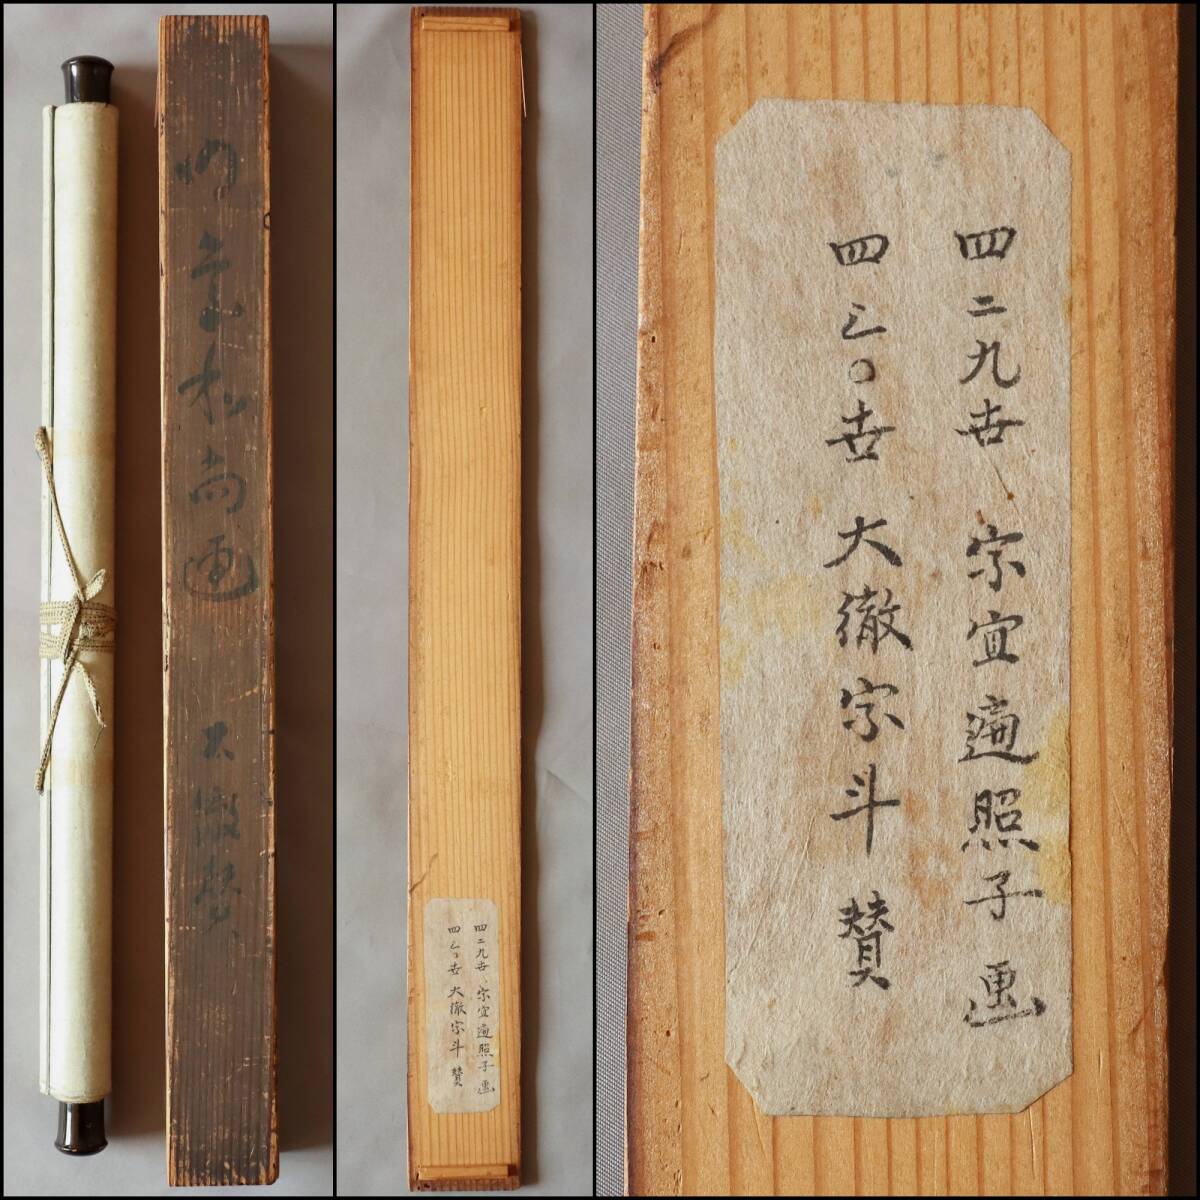 和尚画
大徹賛
四二九世 宗宜遍照子 画
四三〇世 大徹宗斗 賛
四二九世 宗宜遍照子 画
四三〇世 大徹宗斗 賛